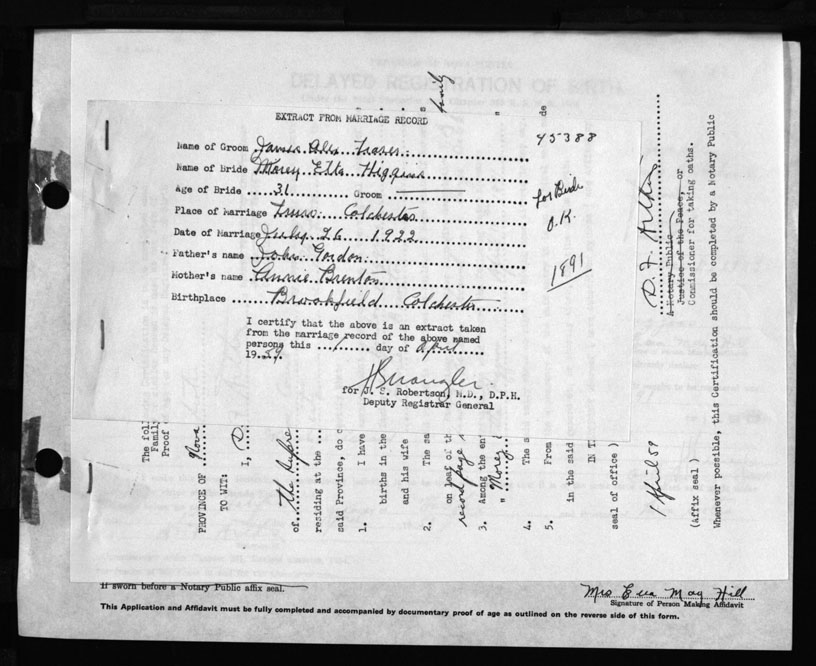 DELAYED REGISTRATION OF BIRTH
family
de
EXTRACT FROM MARRIAGE RECORD
45388
Name of Groom James Alex Fraser
Name of Bride Morey Etta Higgins
Age of Bride 31 Groom
for Bride
O.K.
Place of Marriage Truro Colchester
Date of Marriage July 26 1922
Father's name John Gordon
1891
Mother's name Annie Brenton
Birthplace Brookfield Colchester
I certify that the above is an extract taken
from the marriage record of the above named
persons this 1 day of April
1959.
for J. S. Robertson, M.D., D.P.H.
Deputy Registrar General
The foll
Family
Proof
PROVINCE OF Nova
TO WIT:
I, D.
of the Supre
residing at the
said Province, do c
1. I have
births in the
and his wife
2. The sa
on leaf of th
record page
3. Among the en
" Morey
4. The s
5. From
in the said
IN T
seal of office)
1 April 59
(Affix seal)
D. F.
A Notary Public
Justice of the Peace, or
Commissioner for taking oaths.
Whenever possible, this Certification should be completed by a Notary Public
If sworn before a Notary Public affix seal.
Mrs Eva May Hill
Signature of Person Making Affidavit
This Application and Affidavit must be fully completed and accompanied by documentary proof of age as outlined on the reverse side of this form.